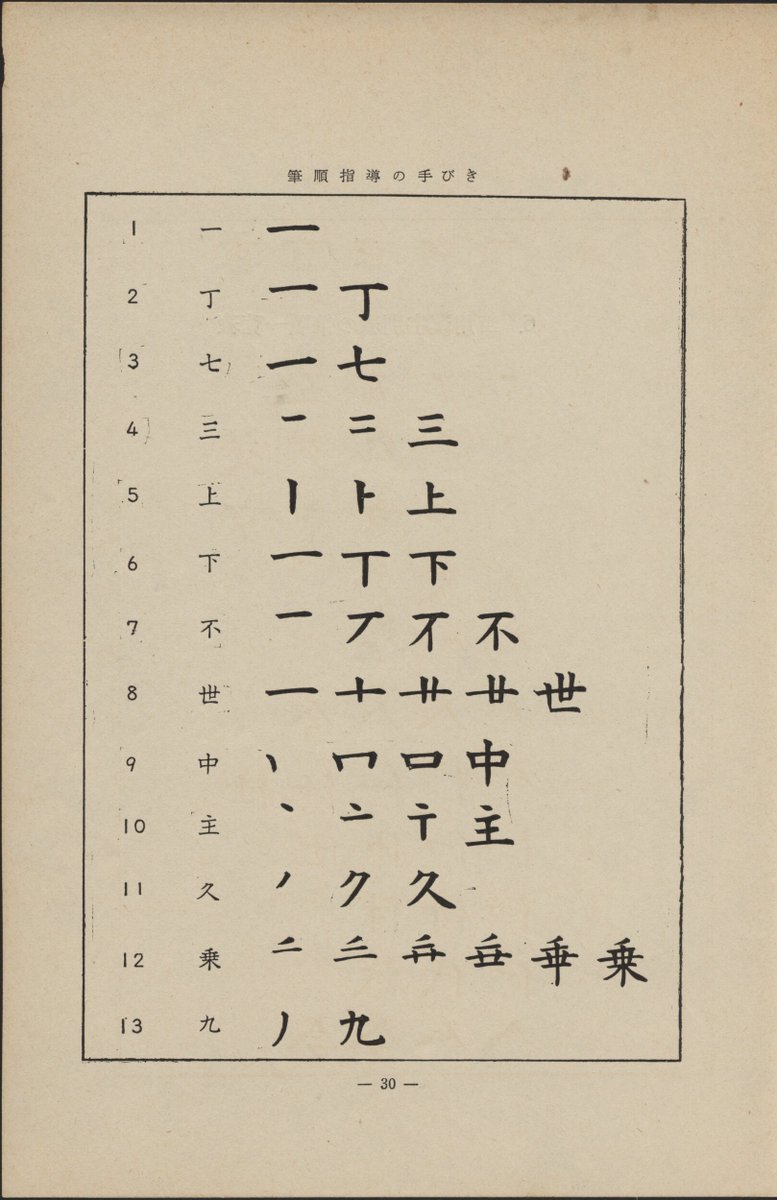 筆順指導の手びき
1 一 一
2 丁 一 丁
3 七 一 七
4 三 一 二 三
5 上 丨 ⺊ 上
6 下 一 丅 下
7 不 一 丆 不
8 世 一 十 卄 廿 世
9 中 丨 冂 口 中
10 主 丶 亠 主
11 久 ノ ク 久
12 乗 二 三 乗
13 九 ノ 九
— 30 —